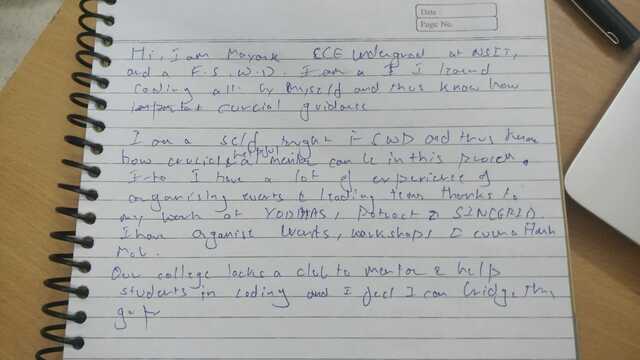 Date :
Page No.
Hi, I am Mayank ECE Undergrad at NSIT,
and a F.S.W.D. I am a I I learned
coding all by myself and thus know how
important crucial guidance
I am a self taught FSWD and thus know
how crucial a helpful mentor can be in this process.
I to I have a lot of experience of
organising events & leading team thanks to
my work at
I have organise events, workshops & even a Flash
Mob.
Our college lacks a club to mentor & help
students in coding and I feel I can bridge this
gap